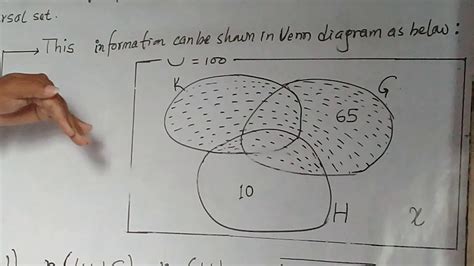 rsal set.
This information can be shawn in Venn diagram as below:
U = 100
K
G
65
10
H
x